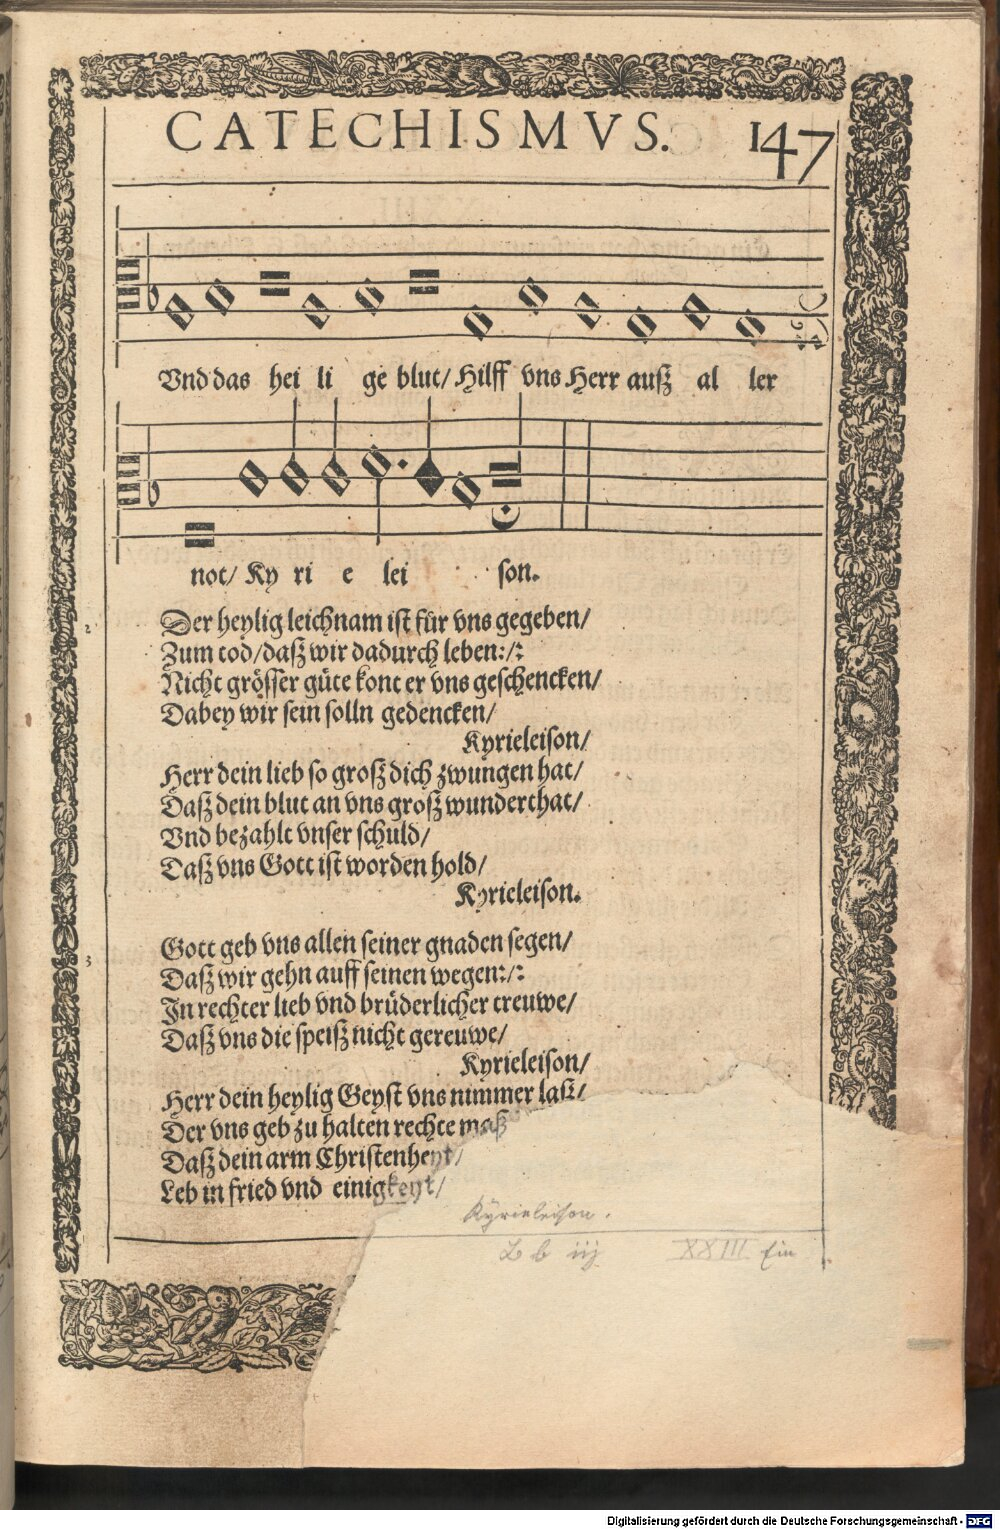 CATECHISMVS. 147
Vnd das hei li ge blut/ Hilff vns Herr auß al ler
not/ Ky ri e lei son.
2 Der heylig leichnam ist für vns gegeben/
Zum tod/daß wir dadurch leben:/:
Nicht grösser güte kont er vns geschencken/
Dabey wir sein solln gedencken/
Kyrieleison/
Herr dein lieb so groß dich zwungen hat/
Daß dein blut an vns groß wunderthat/
Vnd bezahlt vnser schuld/
Daß vns Gott ist worden hold/
Kyrieleison.
3 Gott geb vns allen seiner gnaden segen/
Daß wir gehn auff seinen wegen:/:
In rechter lieb vnd brüderlicher treuwe/
Daß vns die speiß nicht gereuwe/
Kyrieleison/
Herr dein heylig Geyst vns nimmer laß/
Der vns geb zu halten rechte maß
Daß dein arm Christenheyt/
Leb in fried vnd einigkeyt/
Kyrieleison.
B b iij XXIII Ein
Digitalisierung gefördert durch die Deutsche Forschungsgemeinschaft - DFG